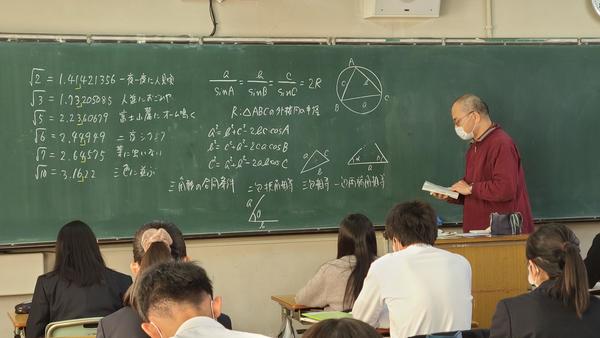 √2 = 1.41421356 一夜一夜に人見頃
√3 = 1.73205085 人並におごれや
√5 = 2.2360679 富士山麓にオーム鳴く
√6 = 2.44949
√7 = 2.64575 菜に虫いない
√10 = 3.1622
a/sinA = b/sinB = c/sinC = 2R
R:△ABCの外接円の半径
a² = b² + c² - 2bc cosA
b² = c² + a² - 2ca cosB
c² = a² + b² - 2ab cosC
A
B
C
a
三角形の合同条件 二辺挟角相等 三辺相等 一辺両端角相等
a
b